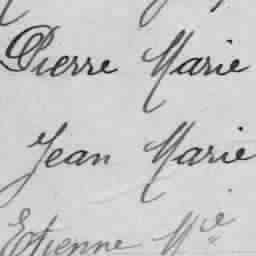 Pierre Marie
Jean Marie
Etienne Mie